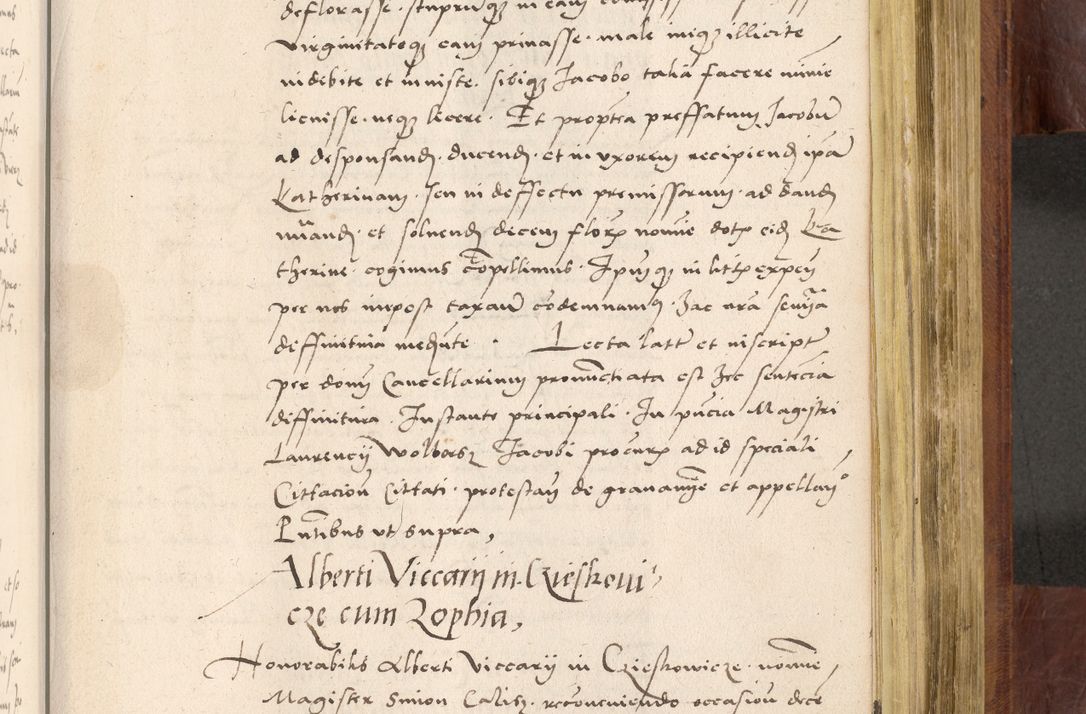 deflorasse stuprumq in eam
virginitateq eam privasse male iniq illicite
indebite et iniuste sibiq Jacobo talia facere minie
licuisse neq licere Et propterea preffatum Jacobum
ad desponsand ducend et in uxorem recipiend ipam
Katherinam seu in deffectu premissorum ad dand
nuand et solvend decem flor nomine dotis eid Ka
therine cogimus compellimus Ipumq in litis expen
per nos impost taxan condemnamus hac nra sentia
deffinitiva mediante Lecta lata et in script
per donum Cancellarium pronunctiata est hec sentencia
diffinitiva Instante principali In pncia Magistri
Laurencij Wolborsz Jacobi procuris ad id speciali
Cittacion Cittati protestan de gravamine et appellan
Pntibus ut supra
Alberti Viccarij in Czieskovi
cze cum Zophia
Honorabilis Alberti Viccarij in Czieskowicze nomine
Magister Simon Calisz reconveniendo occasion dece